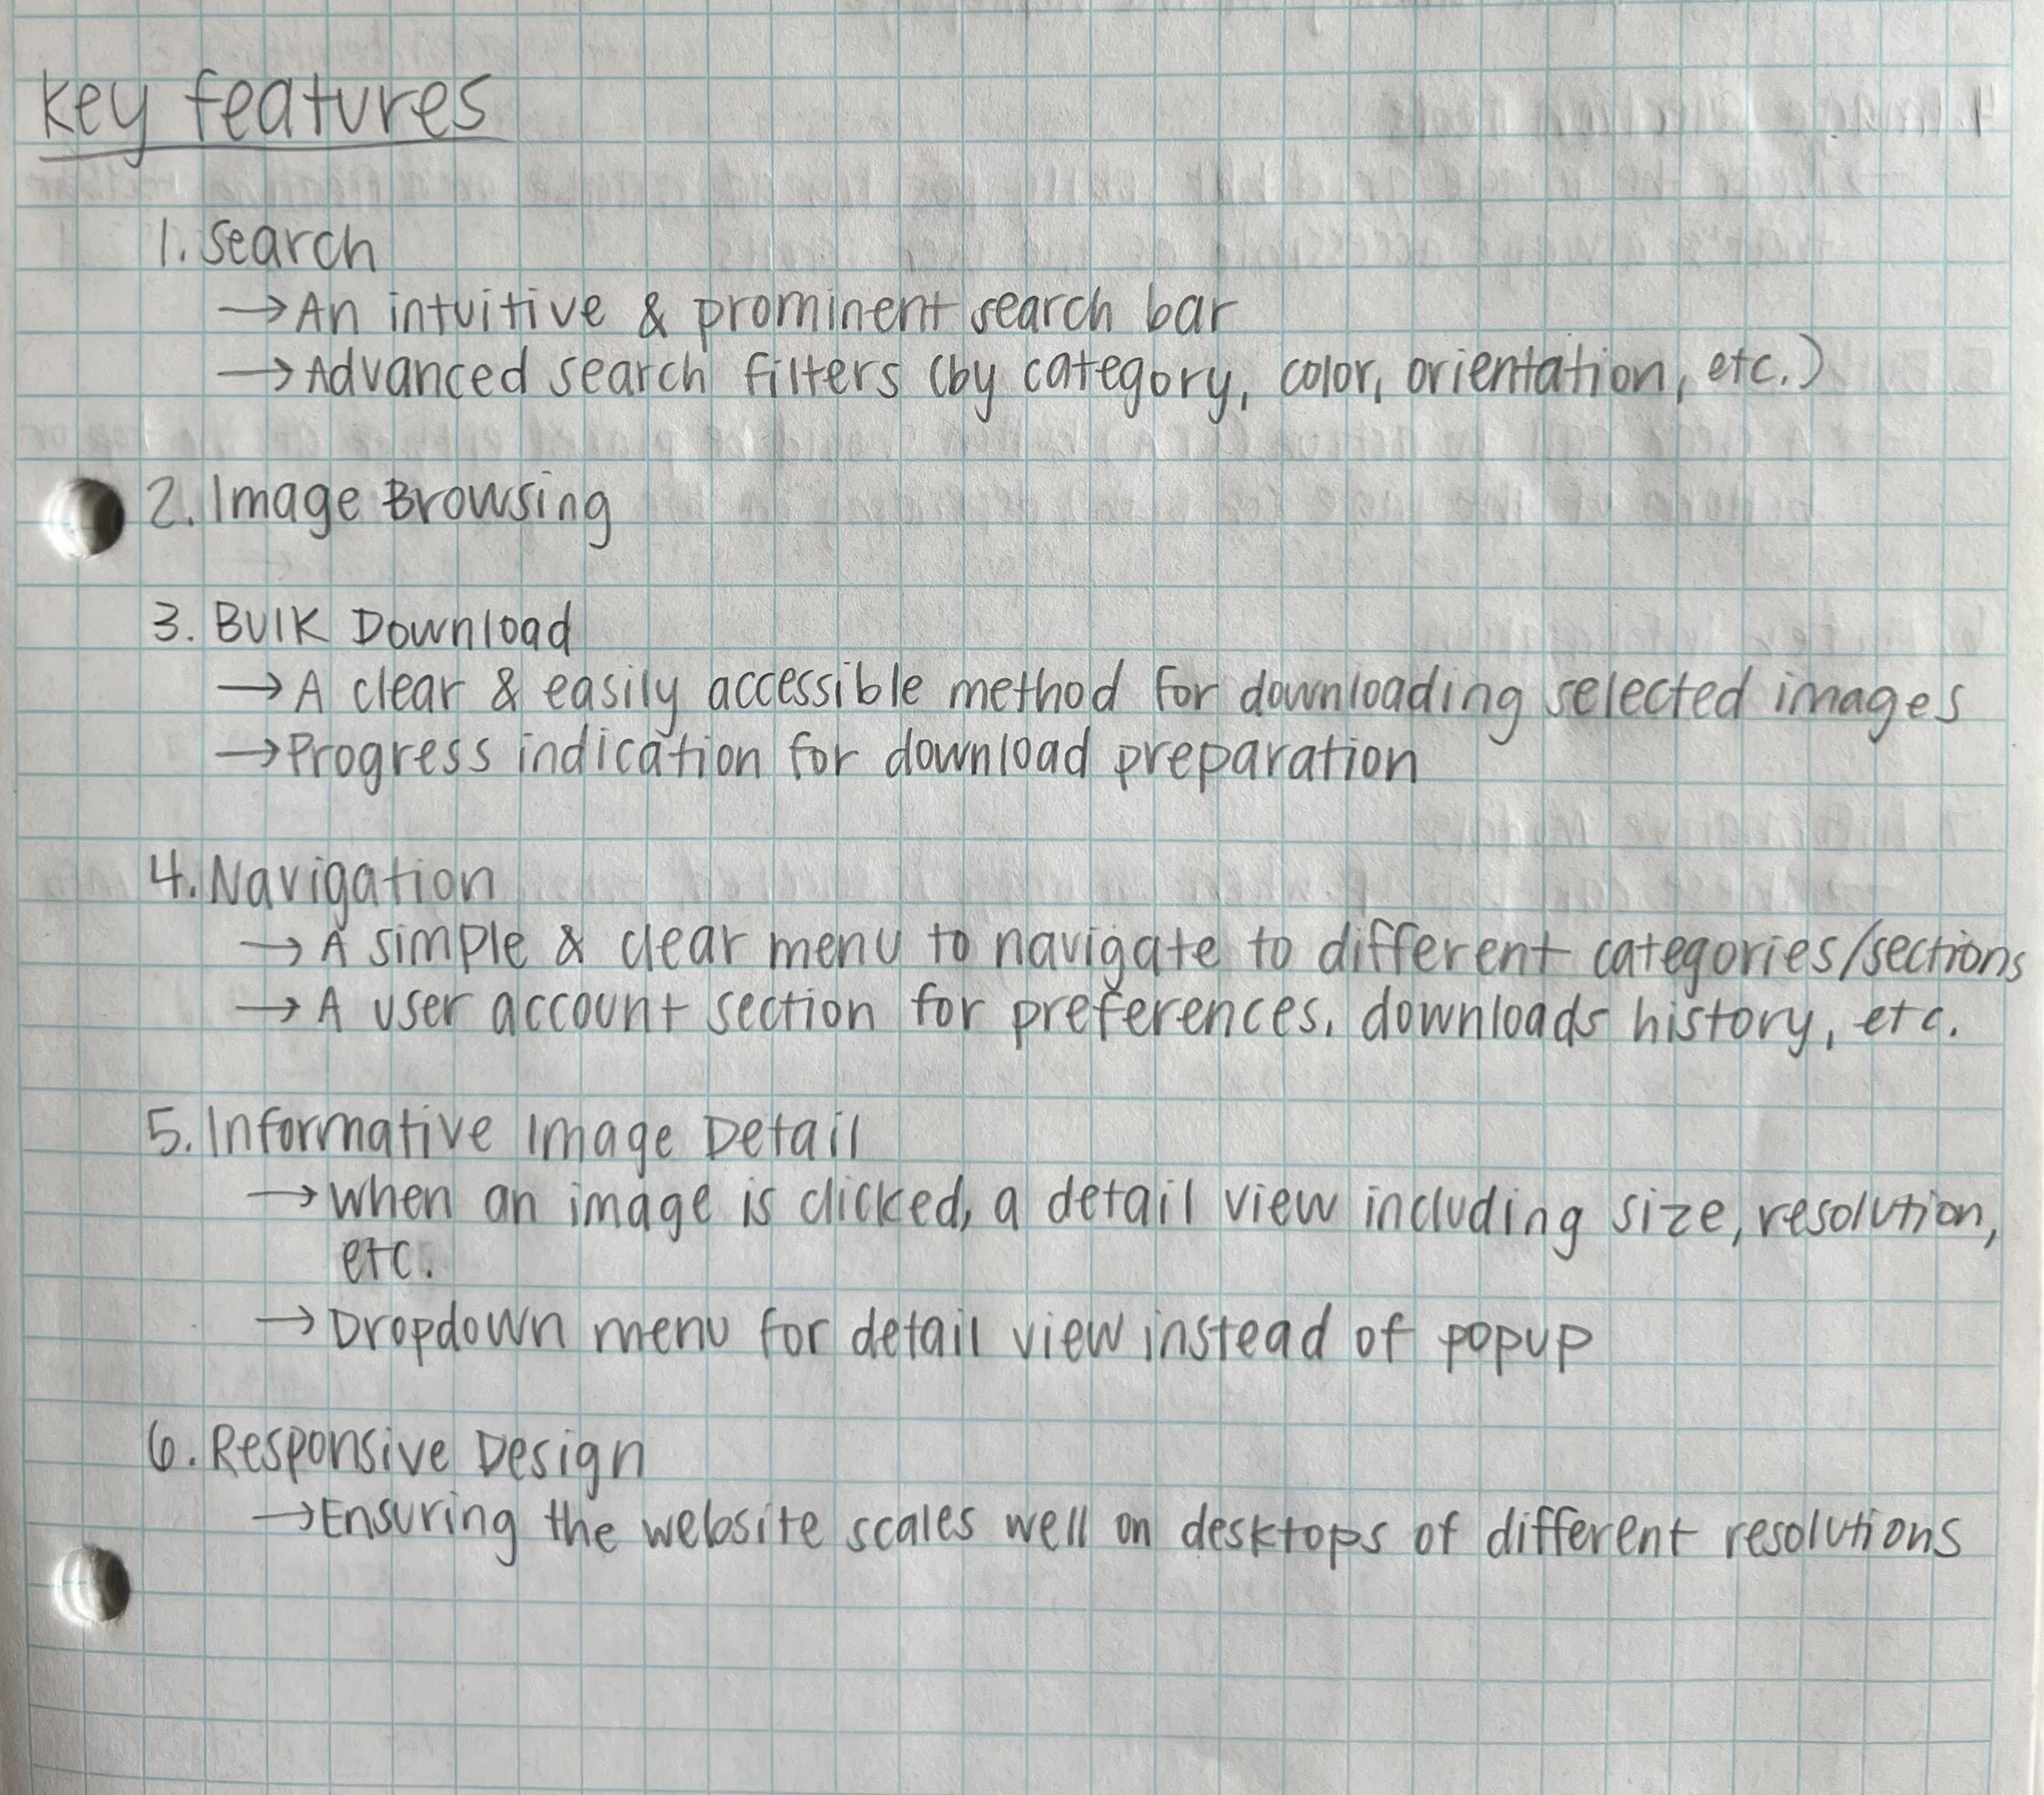 key features
1. Search
→ An intuitive & prominent search bar
→ Advanced search filters (by category, color, orientation, etc.)
2. Image Browsing
3. Bulk Download
→ A clear & easily accessible method for downloading selected images
→ Progress indication for download preparation
4. Navigation
→ A simple & clear menu to navigate to different categories/sections
→ A user account section for preferences, downloads history, etc.
5. Informative Image Detail
→ when an image is clicked, a detail view including size, resolution,
etc.
→ Dropdown menu for detail view instead of popup
6. Responsive Design
→ Ensuring the website scales well on desktops of different resolutions